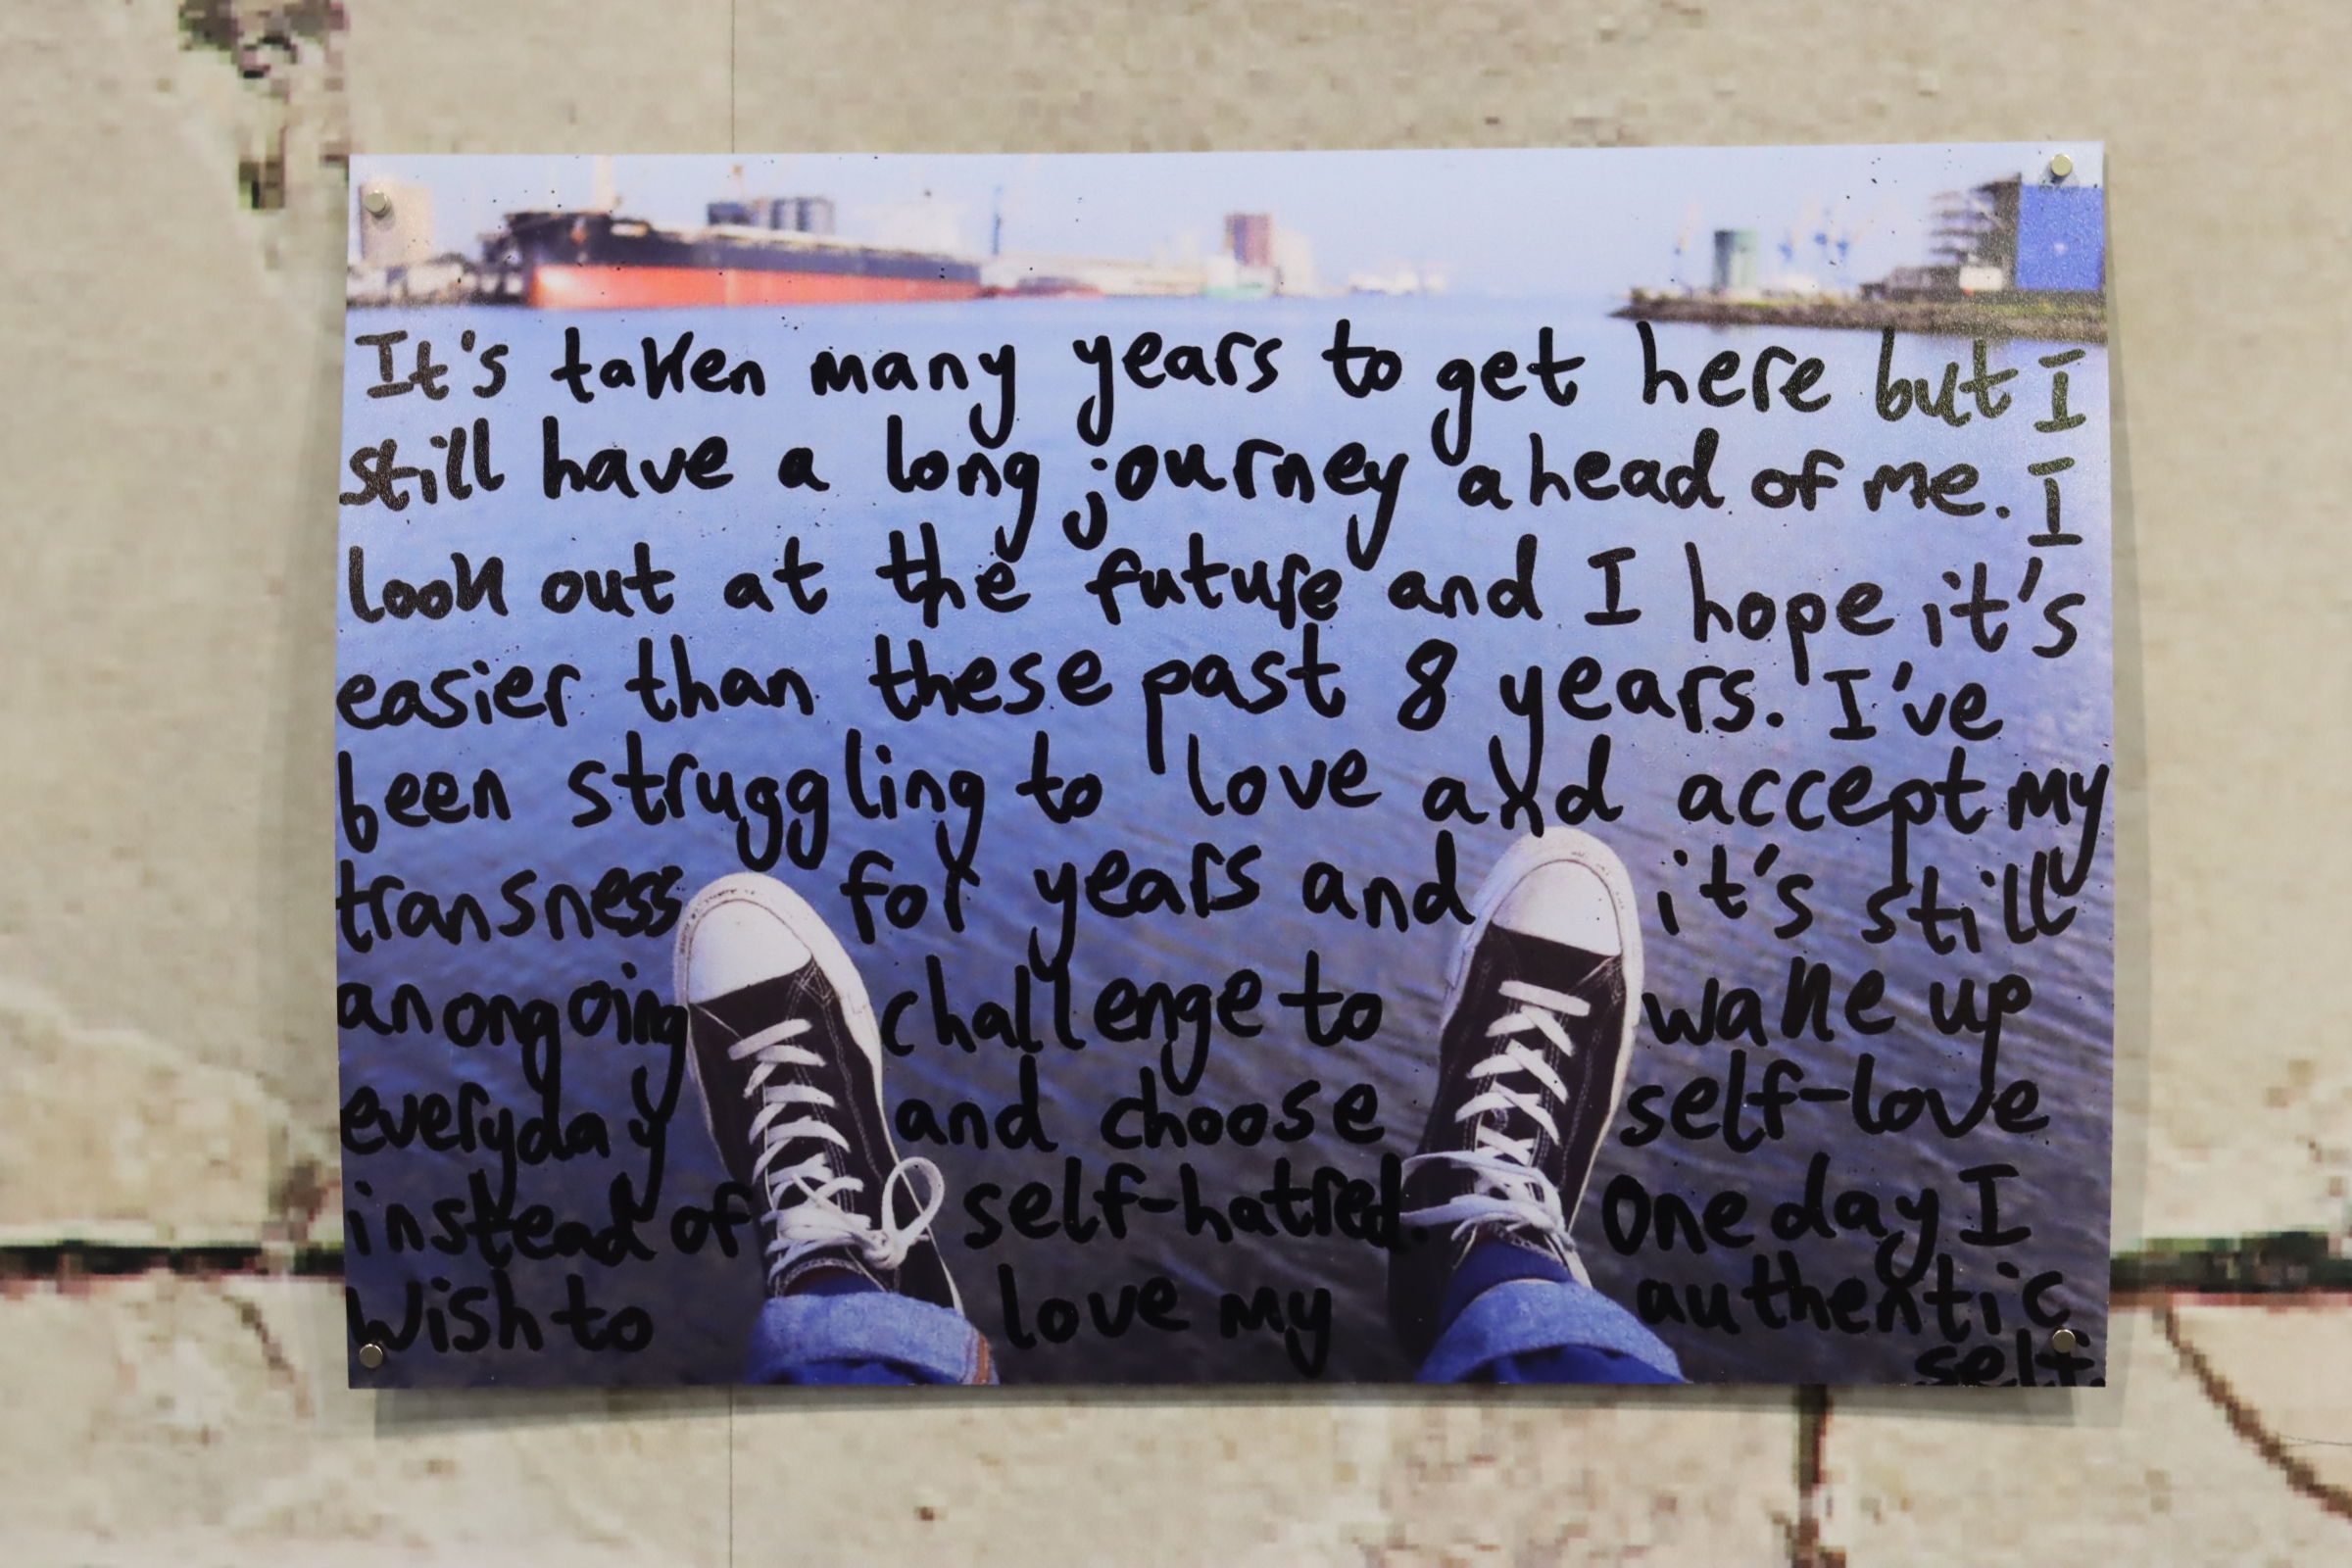 It's taken many years to get here but I
still have a long journey ahead of me. I
look out at the future and I hope it's
easier than these past 8 years. I've
been struggling to love and accept my
transness for years and it's still
an ongoing challenge to wake up
everyday and choose self-love
instead of self-hatred. One day I
wish to love my authentic
self.